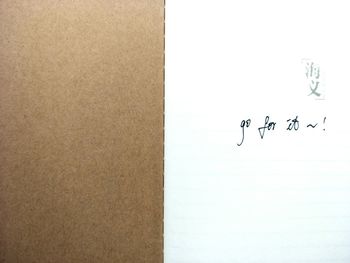 海义
go for it ~!